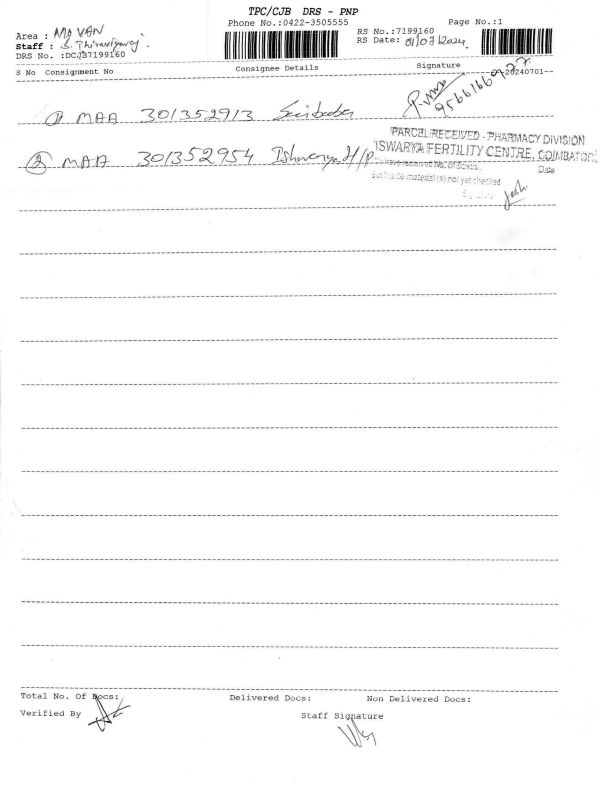 TPC/CJB DRS - PNP
Phone No.:0422-3505555
Page No.:1
Area : MA VAN
RS No.:7199160
Staff : S.
RS Date: 01/07/2024
DRS No. :DCJB7199160
S No Consignment No
Consignee Details
Signature
20240701--
① MAA 301352913 Saibaba
9566166927
② MAA 301352954 H/P
PARCEL RECEIVED - PHARMACY DIVISION
ISWARYA FERTILITY CENTRE, COIMBATORE
Date
But inside material(s) not yet checked
Total No. Of Docs:
Delivered Docs:
Non Delivered Docs:
Verified By
Staff Signature